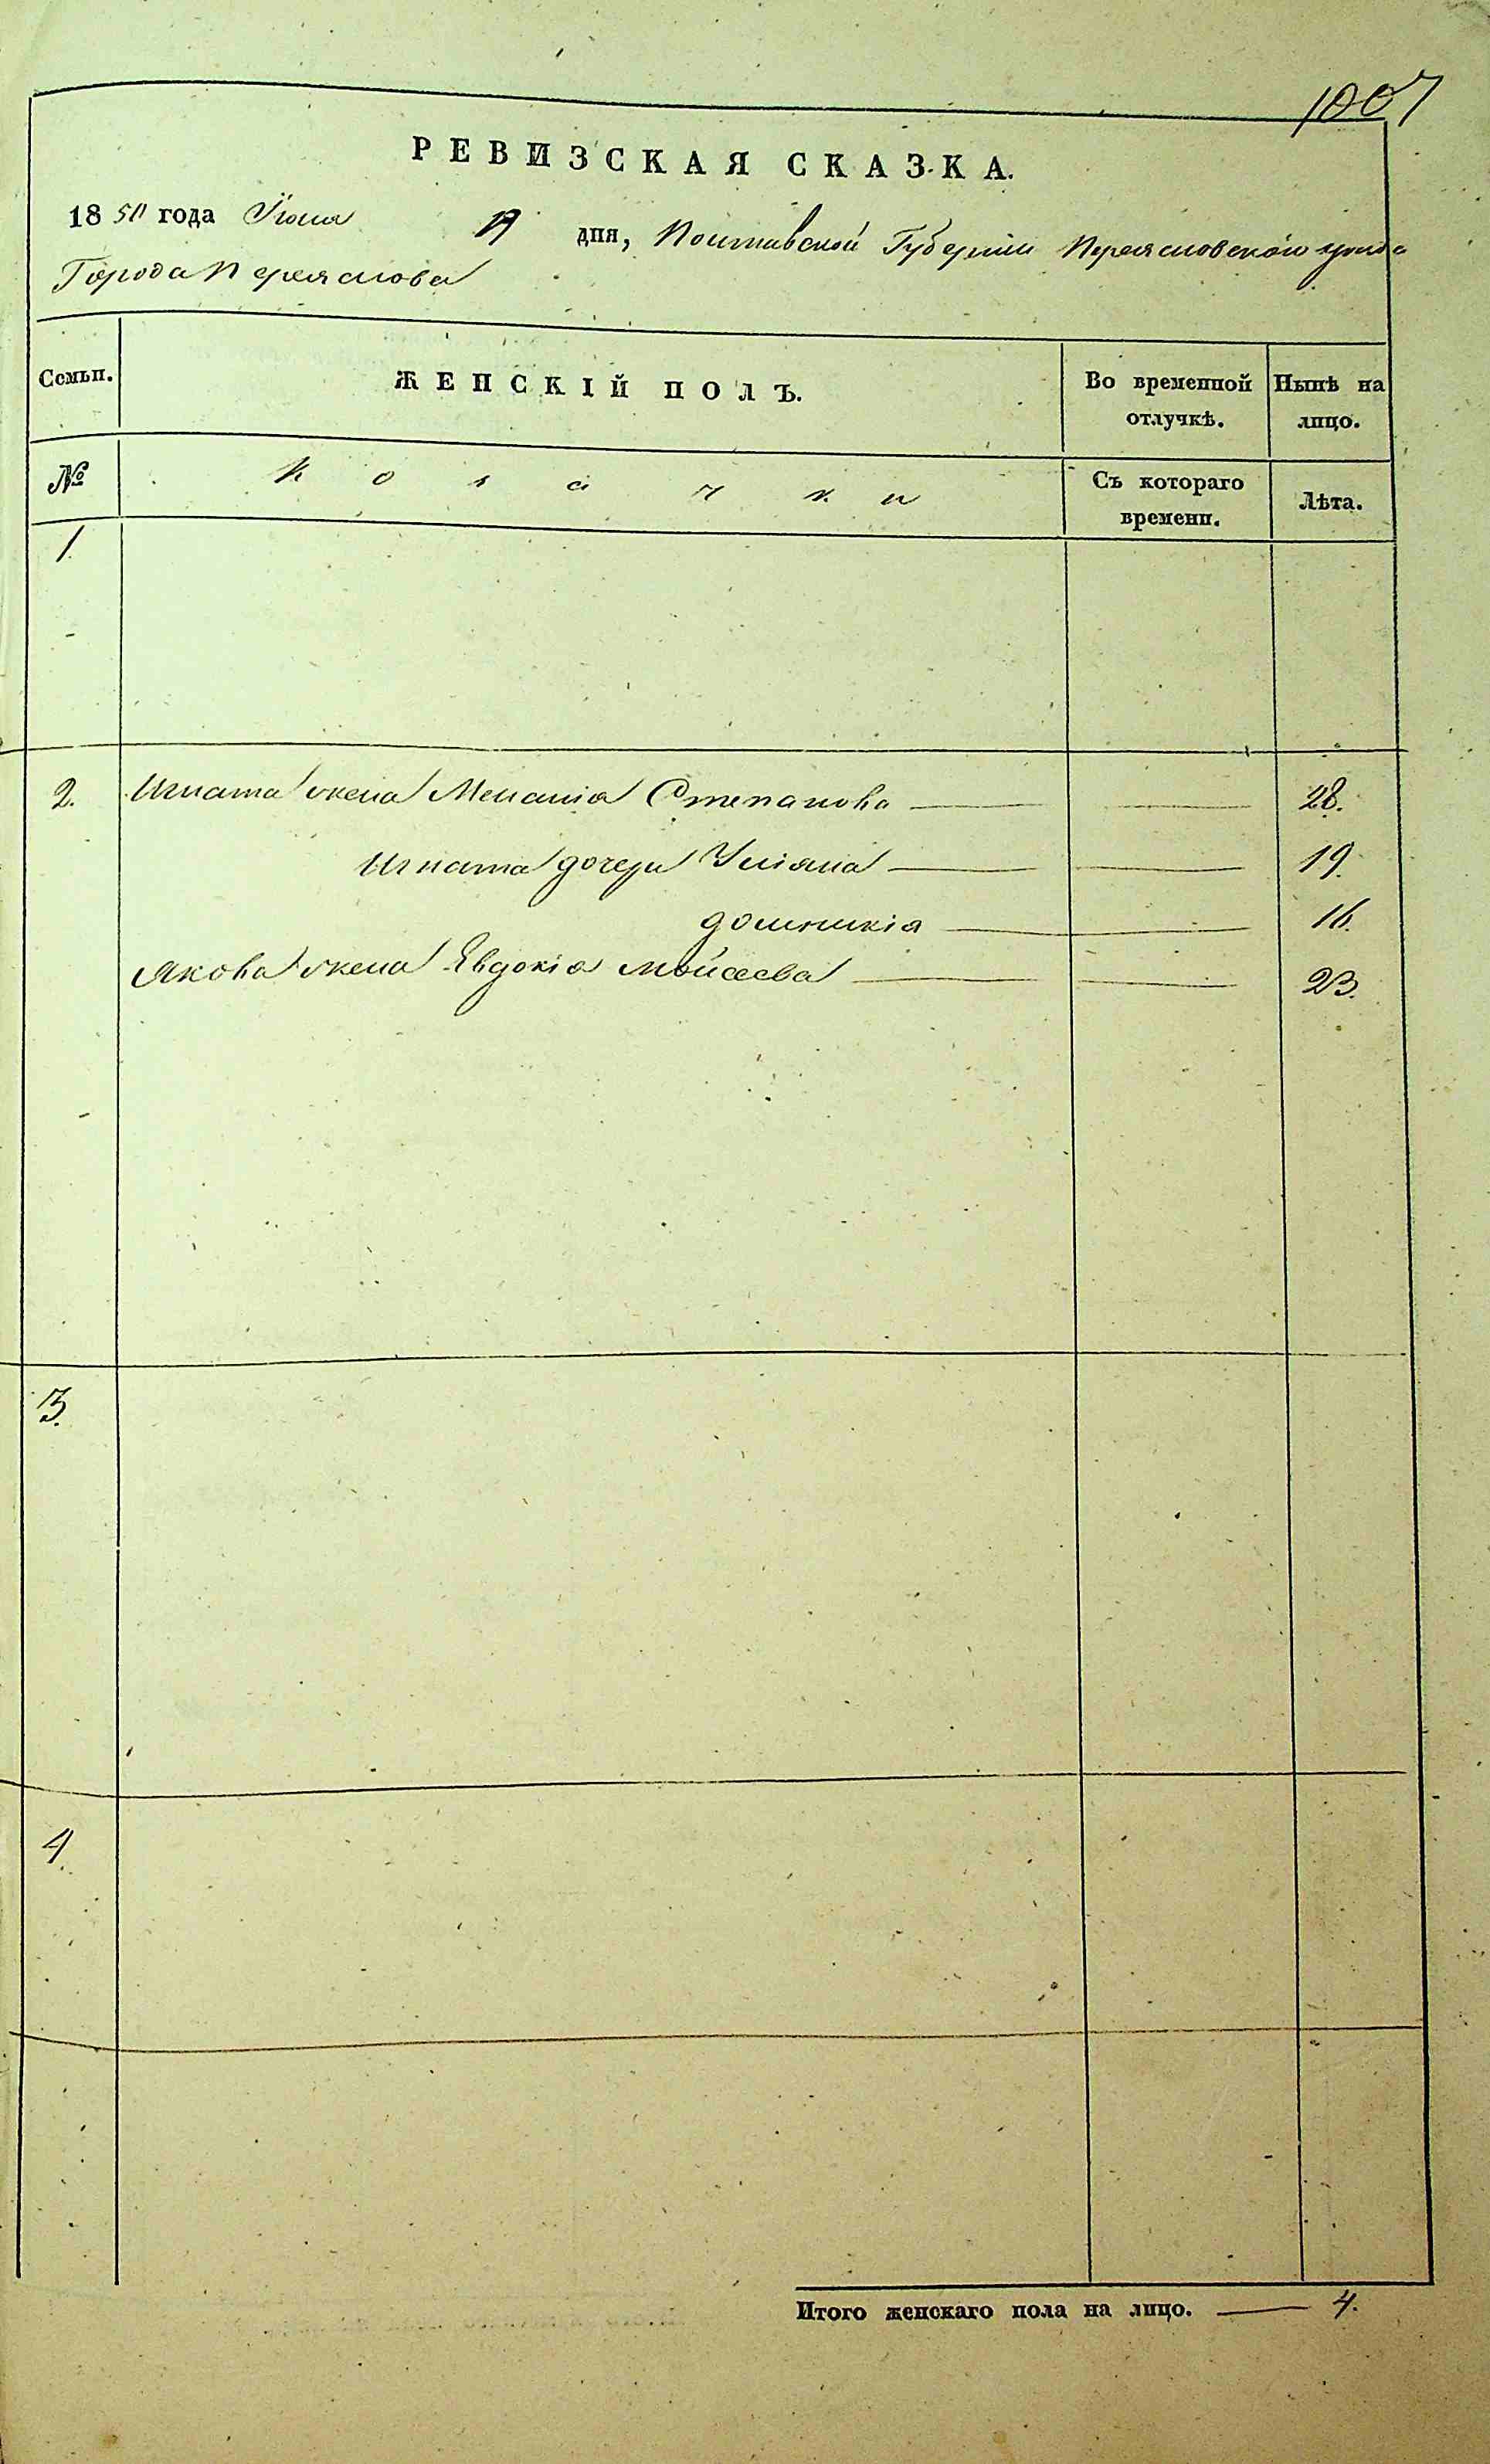 1007
РЕВИЗСКАЯ СКАЗКА.
1850 года Июня 19 дня, Полтавской Губерніи Переясловского уезда
Города Переяслова
Семьи. ЖЕНСКІЙ ПОЛЪ. Во временной отлучкѣ. Нынѣ на лицо.
№ Козачки Съ котораго времени. Лѣта.
1.
2. Игната жена Меланія Степанова 28.
Игната дочери Уліяна 19.
Домникія 16.
Якова жена Явдокіа Мойсеева 23.
3.
4.
Итого женскаго пола на лицо. 4.